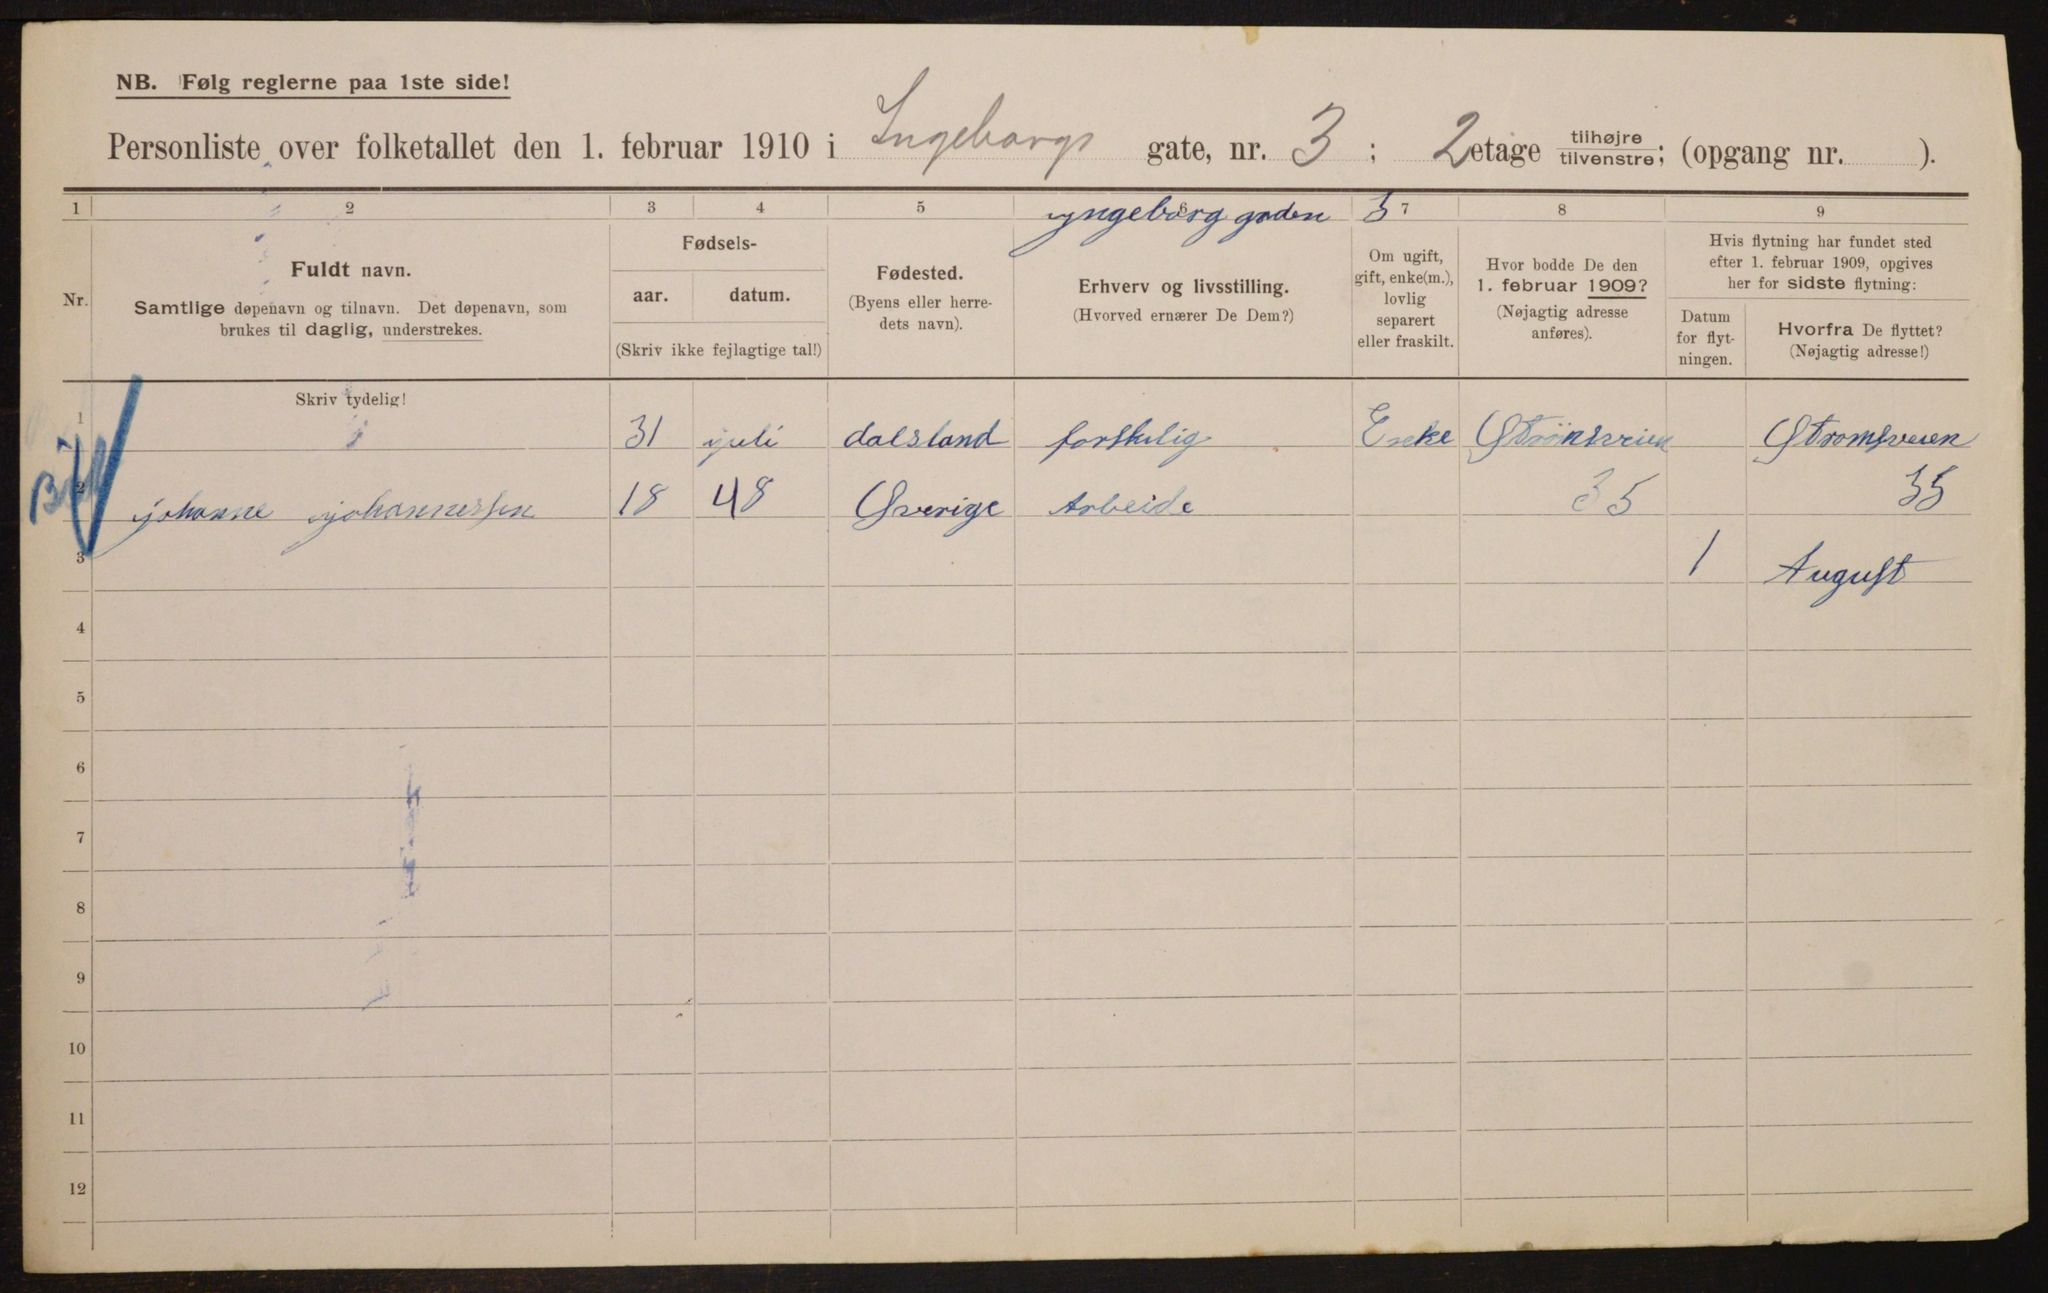 NB. Følg reglerne paa 1ste side!
Personliste over folketallet den 1. februar 1910 i Ingeborgs gate, nr. 3 ; 2 etage tilhøjre/tilvenstre; (opgang nr. ).
1 2 3 4 5 6 7 8 9
yngeborg gaden 3
Nr.
Fuldt navn.
Samtlige døpenavn og tilnavn. Det døpenavn, som
brukes til daglig, understrekes.
Fødsels-
aar. datum.
(Skriv ikke fejlagtige tal!)
Fødested.
(Byens eller herre-
dets navn).
Erhverv og livsstilling.
(Hvorved ernærer De Dem?)
Om ugift,
gift, enke(m.),
lovlig
separert
eller fraskilt.
Hvor bodde De den
1. februar 1909?
(Nøjagtig adresse
anføres).
Hvis flytning har fundet sted
efter 1. februar 1909, opgives
her for sidste flytning:
Datum
for flyt-
ningen.
Hvorfra De flyttet?
(Nøjagtig adresse!)
Skriv tydelig!
1 31 juli dalsland forskelig Enke Strönsveien Stromsveien
2 johanne johannessen 18 48 Sverige Arbeide 35 35
3 1 August
4
5
6
7
8
9
10
11
12